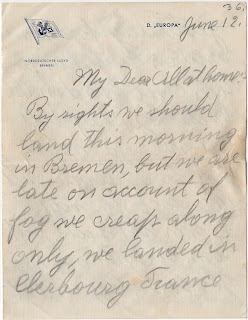 36.
D. „EUROPA"
June 12.
NORDDEUTSCHER LLOYD
BREMEN
My Dear All at home:
By rights we should
land this morning
in Bremen, but we are
late on account of
fog we creap along
only, we landed in
Cherbourg France